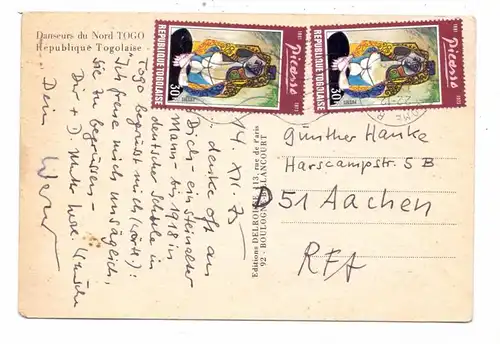 Danseurs du Nord TOGO
République Togolaise
14. XII. 75
... denke oft an
Dich - ein steinalter
Mann - bis 1918 in
deutscher Schule in
Togo begrüsst mich (wörtl.):
"Ich freue mich unsäglich,
Sie zu begrüssen -
Dir + D. Mutter
Dein
Editions DELROISSE 113, rue de Paris
92 BOULOGNE BILLANCOURT
REPUBLIQUE TOGOLAISE
30f
POSTES
Picasso
1881
1973
REPUBLIQUE TOGOLAISE
30f
POSTES
Picasso
1881
1973
Günther Hanke
Harscampstr. 5 B
51 Aachen
RFA